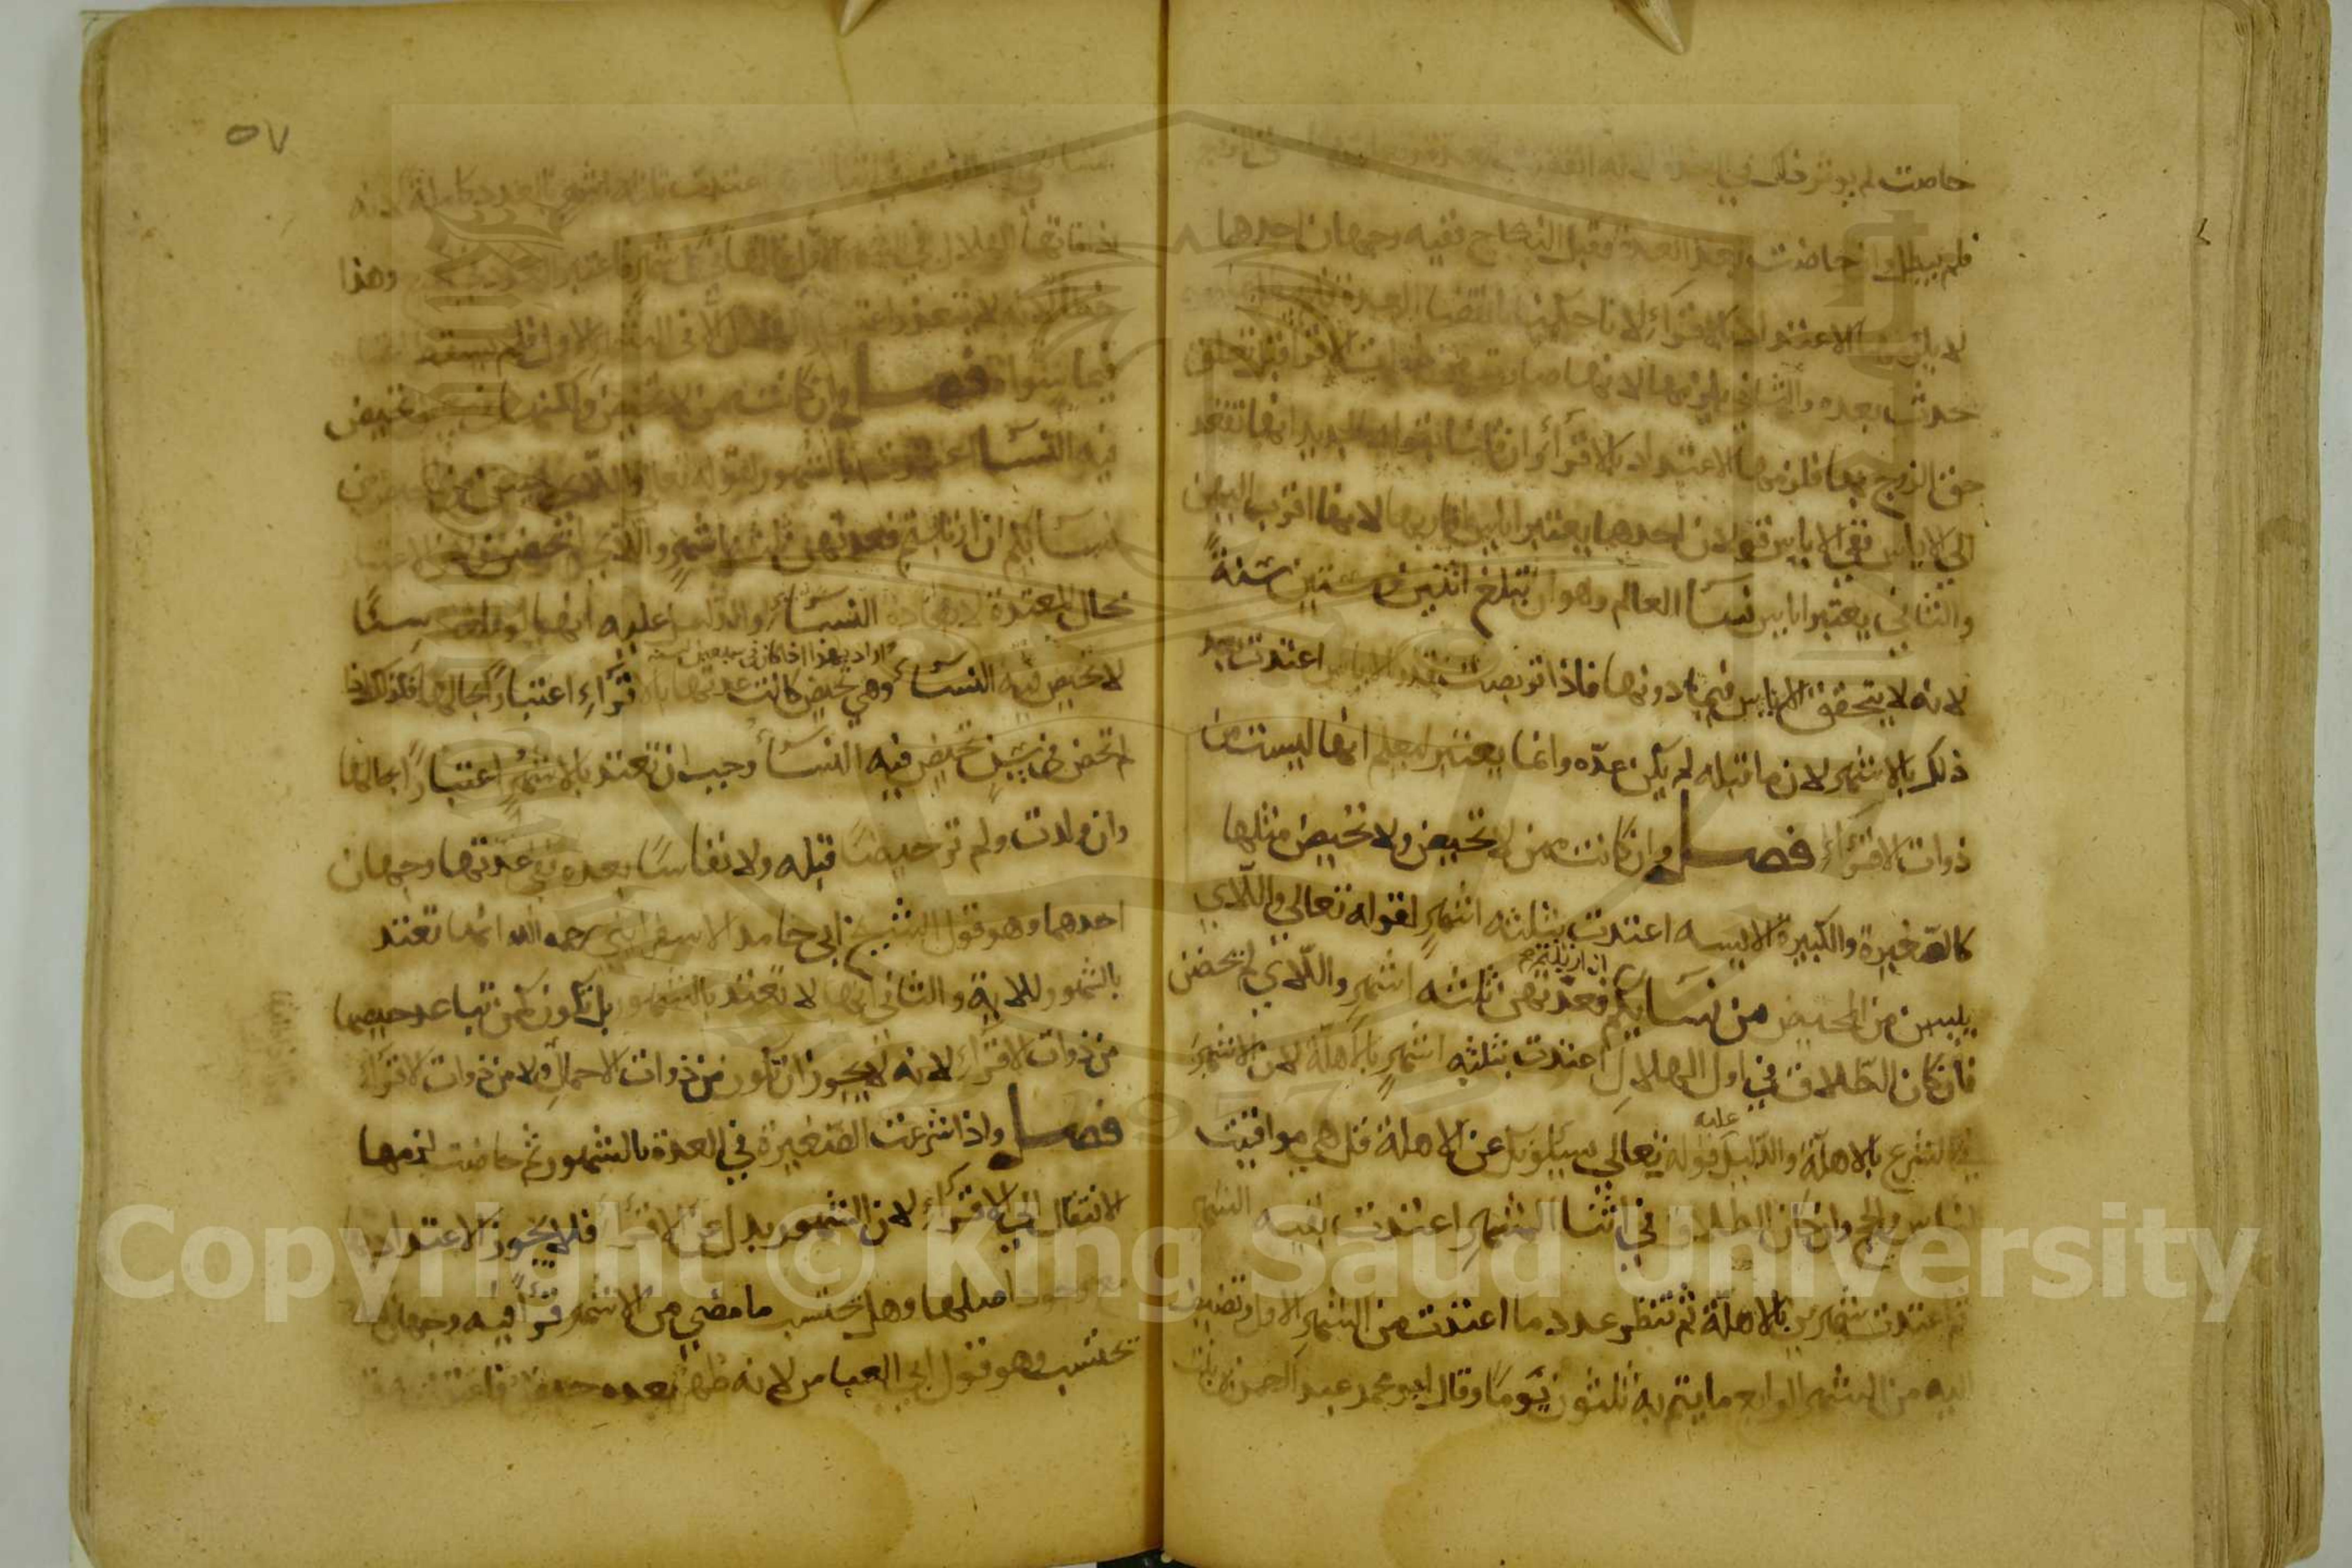 حاضت لم يوثر ذلك في
فلم يبطل وان حاضت بعد العدة وقبل النكاح ففيه وجهان احدها
لا يلزمها الاعتداد بالاقراء لانا حكمنا بانقضا العدة
حدث بعده والثاني يلزمها لانها صارت من ذوات الاقرا قبل تعلق
حق الزوج بها فلزمها الاعتداد بالاقراء وان قلنا بقوله الجديد انها تقعد
الي الاياس ففي الاياس قولان احدها يعتبر اياس اقاربها لانها اقرب اليهن
والثاني يعتبر اياس نسا العالم وهو ان تبلغ اثنين وستين سنة
لانه لا يتحقق الاياس فيما دونها فاذا تربصت قدر الاياس اعتدت بعد
ذلك بالاشهر لان ما قبله لم يكن عدة وانما يعتبر ليعلم انها ليست من
ذوات الاقراء فصل وان كانت ممن لا تحيض ولا تحيض مثلها
كالصغيرة والكبيرة الايسه اعتدت بثلثه اشهر لقوله تعالي واللاي
يئسن من المحيض من نسايكم ان ارتبتم فعدتهن ثلثه اشهر واللاي لم يحضن
فان كان الطلاق في اول الهلال اعتدت بثلثه اشهر بالاهلة لان الاشهر
في الشرع بالاهلة والدليل عليه قوله تعالي يسيلونك عن الاهلة قل هي مواقيت
للناس والحج وان كان الطلاق في اثنا الشهر اعتدت بقيه الشهر
ثم اعتدت شهرين بالاهلة ثم تنظر عدد ما اعتدت من الشهر الاول وتضيف
اليه من الشهر الرابع ما يتم به ثلثون يوما وقال ابو محمد عبد الرحمن بن بنت
٥٧
اعتدت ثلثه اشهر بالعدد كاملة لانه
اذا فاتها الهلال في وهذا
خطا لانه لم يتعذر اعتبار الهلال الا في الشهر الاول فلم يسقط
فيما سواه فصل وان كانت ممن لا تحيض ولكنها في سن تحيض
فيه النسا اعتدت بالشهور لقوله تعالي واللاي يئسن من المحيض من
نسايكم ان ارتبتم فعدتهن ثلثه اشهر واللاي لم يحضن ولان الاعتبار
بحال المعتدة لا بعادة النساء والدليل عليه انها لو بلغت سنا
لا تحيض فيه النساء وهي تحيض كانت عدتها بالاقراء اعتبارا بحالها فكذلك اذا
اراد بهذا اذا كان في سبعين سنه
لم تحض في سن تحيض فيه النساء وجب ان تعتد بالاشهر اعتبارا بحالها
وان ولدت ولم تر حيضا قبله ولا نفاسا بعده ففي عدتها وجهان
احدهما وهو قول الشيخ ابي حامد الاسفرايني رحمه الله انها تعتد
بالشهور للاية والثاني انها لا تعتد بالشهور بل تكون كمن تباعد حيضها
من ذوات الاقراء لانه لا يجوز ان تكون من ذوات الاحمال ولا من ذوات الاقراء
فصل واذا شرعت الصغيرة في العدة بالشهور ثم حاضت لزمها
الانتقال الي الاقراء لان الشهور بدل عن الاقراء فلا يجوز الاعتداد بها
مع وجود اصلها وهل تحتسب ما مضي من الاشهر قرءا فيه وجهان
تحتسب وهو قول ابي العباس لانه طهر بعده حيض